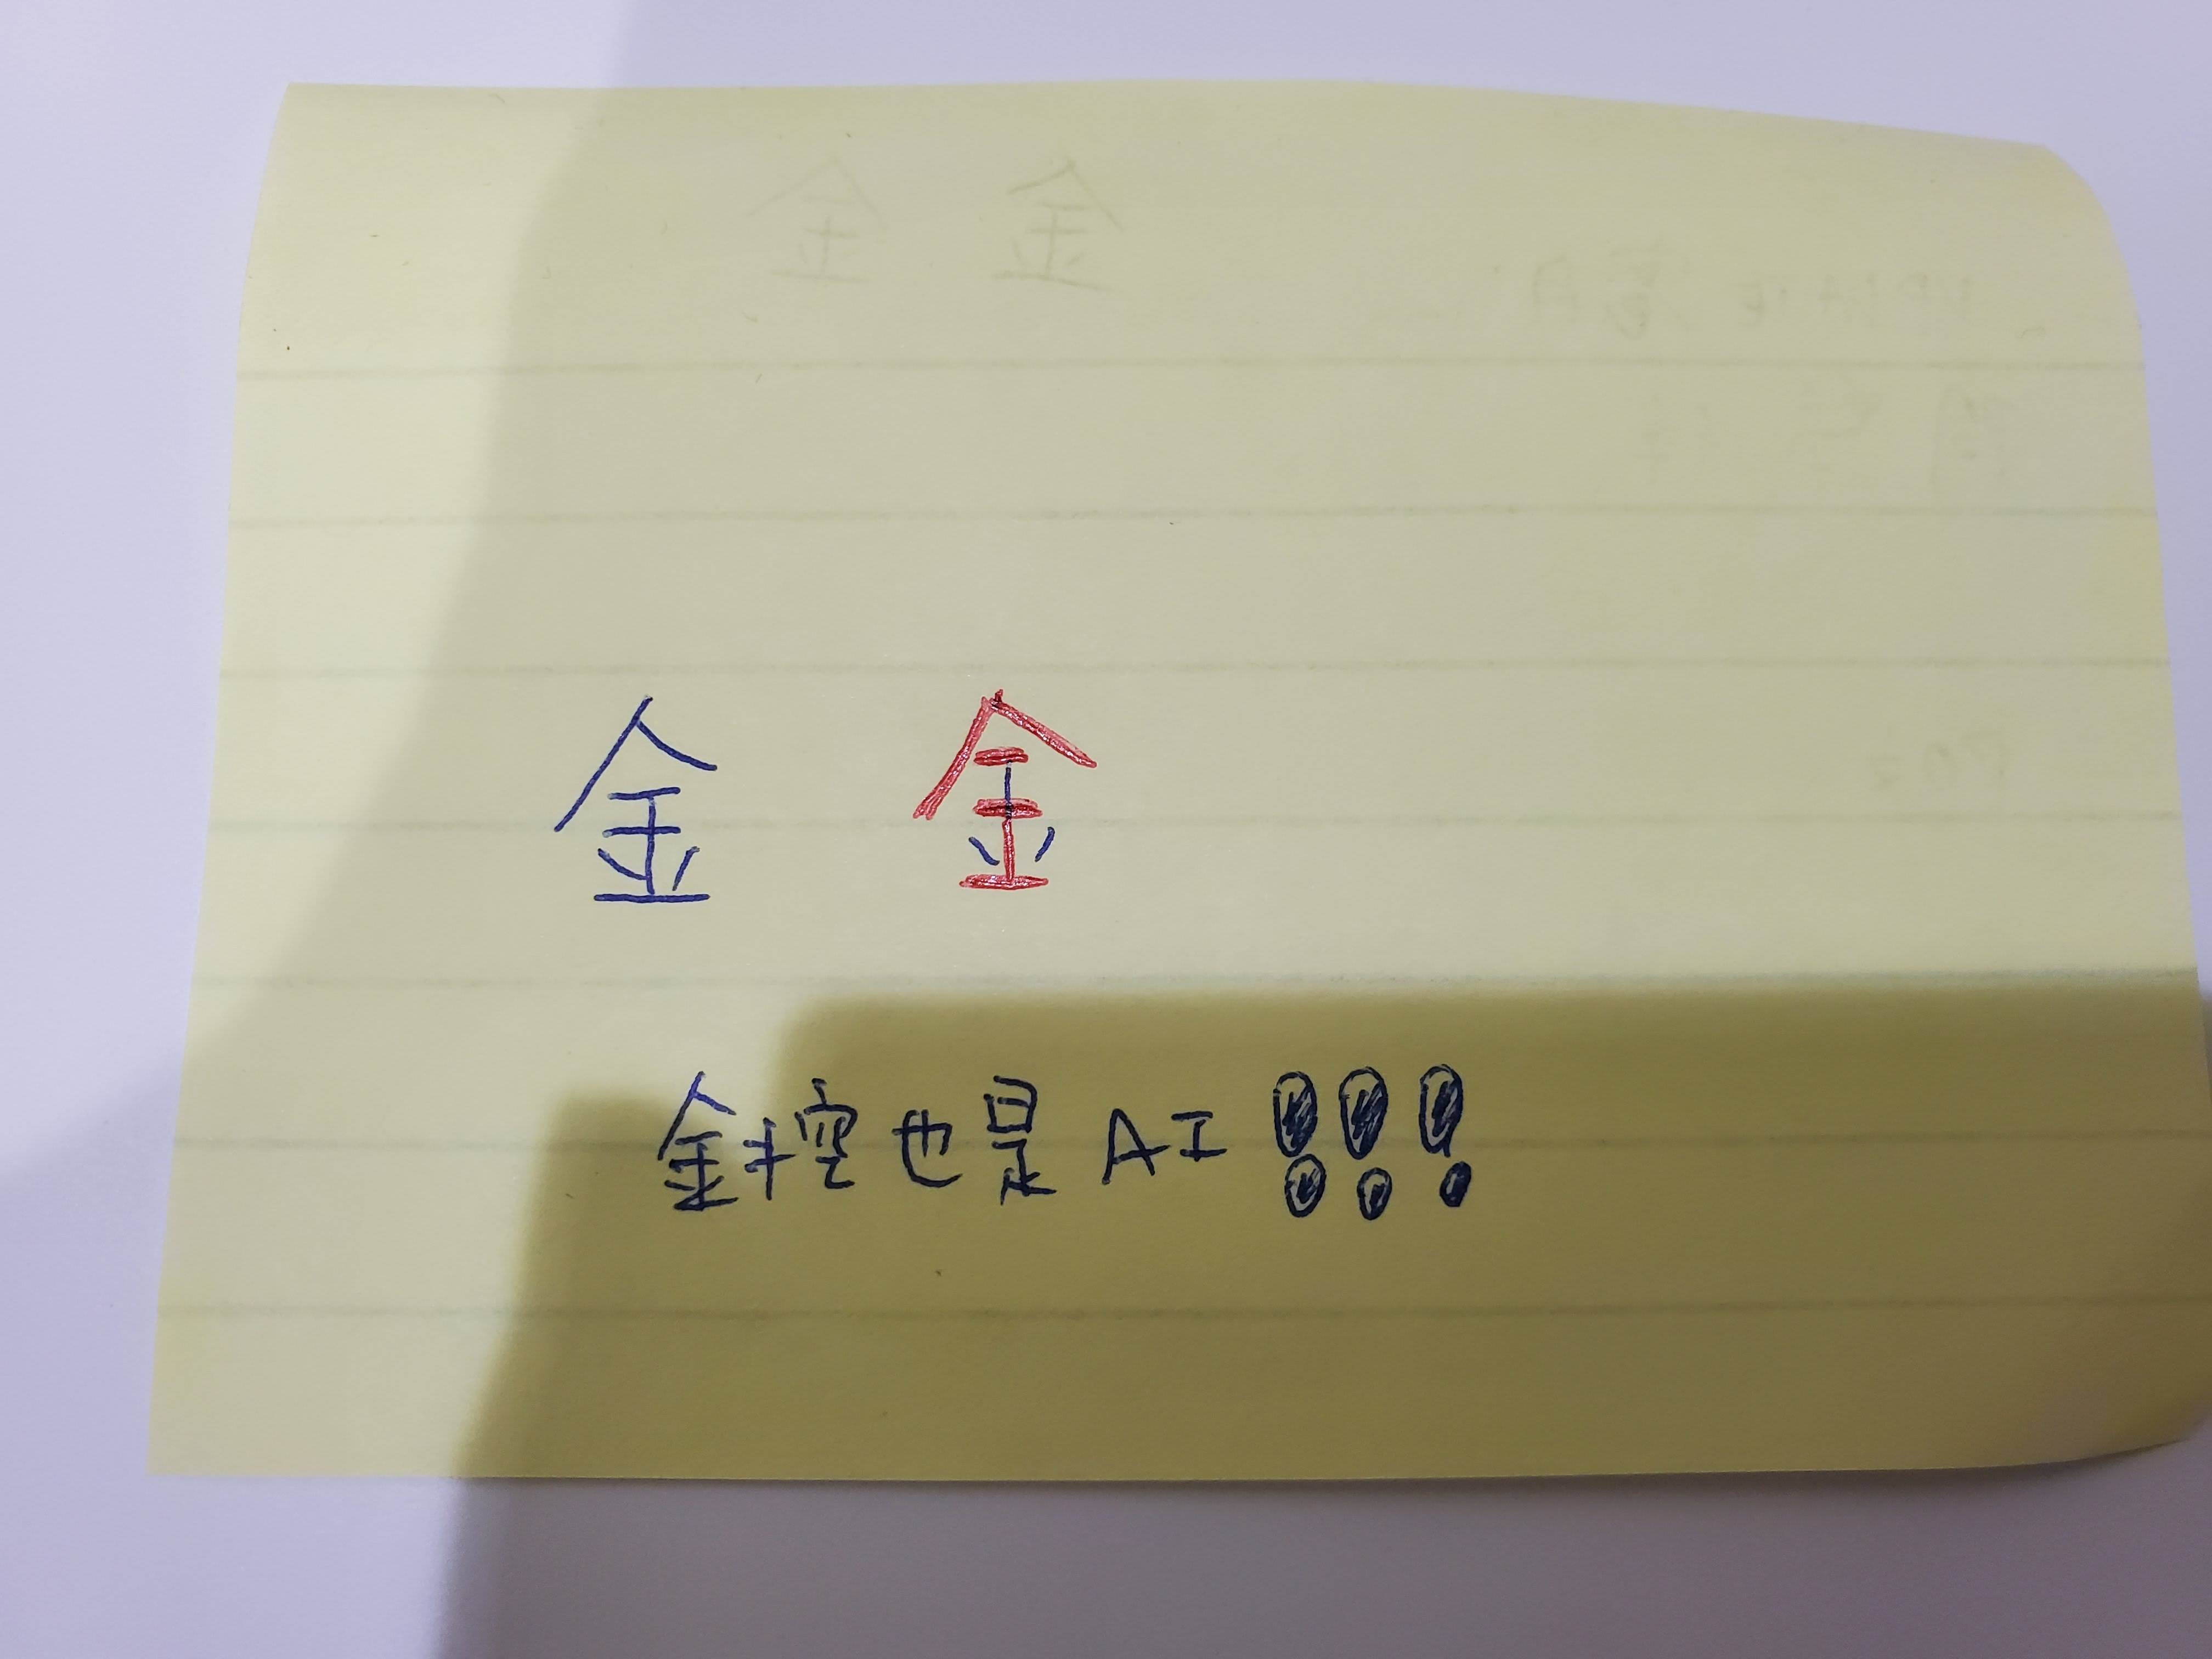 金 金
金控也是AI!!!